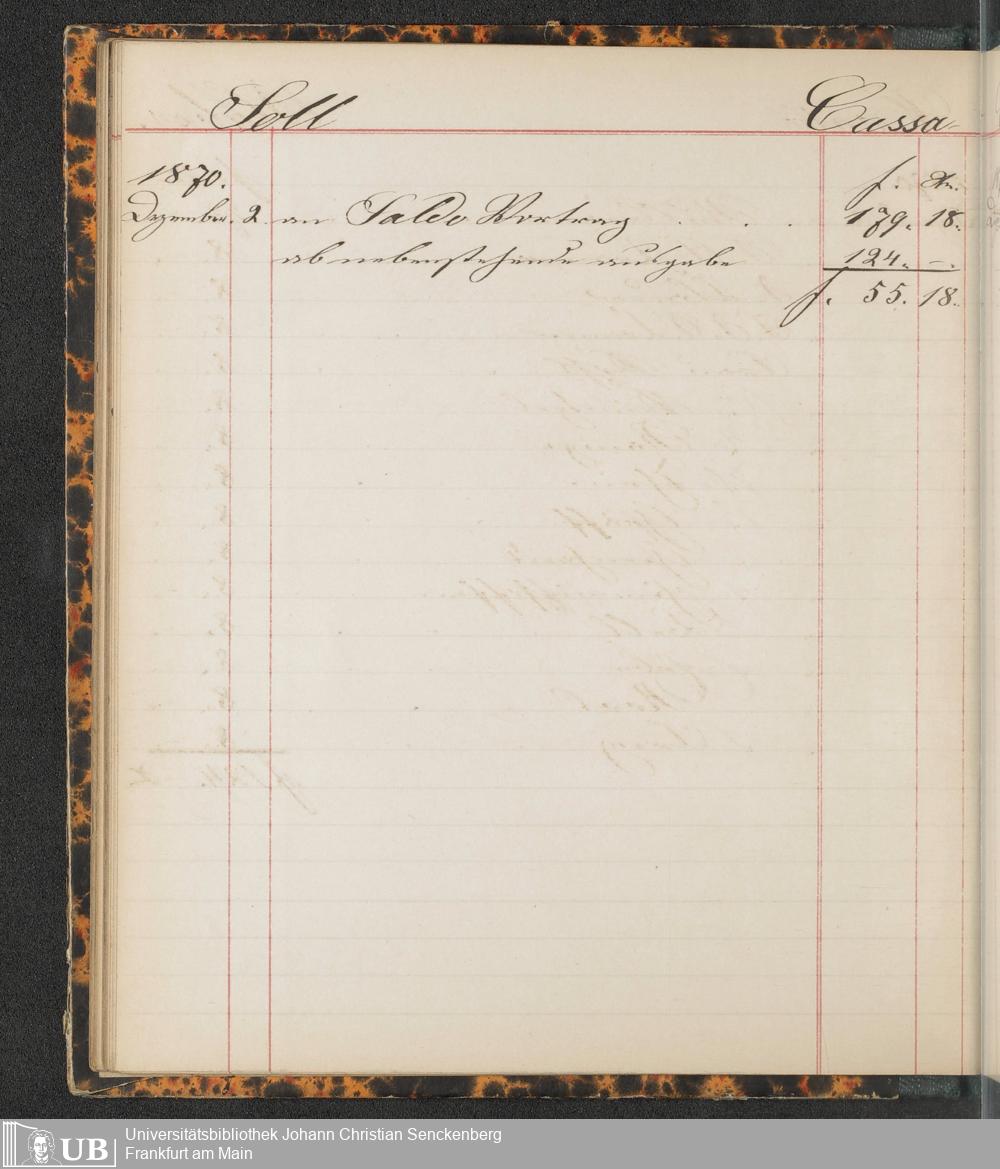 Soll Cassa
1870. f. Xr.
Dezember. 2. an Saldo Vortrag . . . 179. 18.
ab nebenstehende ausgabe 124. –.
f. 55. 18.
UB Universitätsbibliothek Johann Christian Senckenberg
Frankfurt am Main